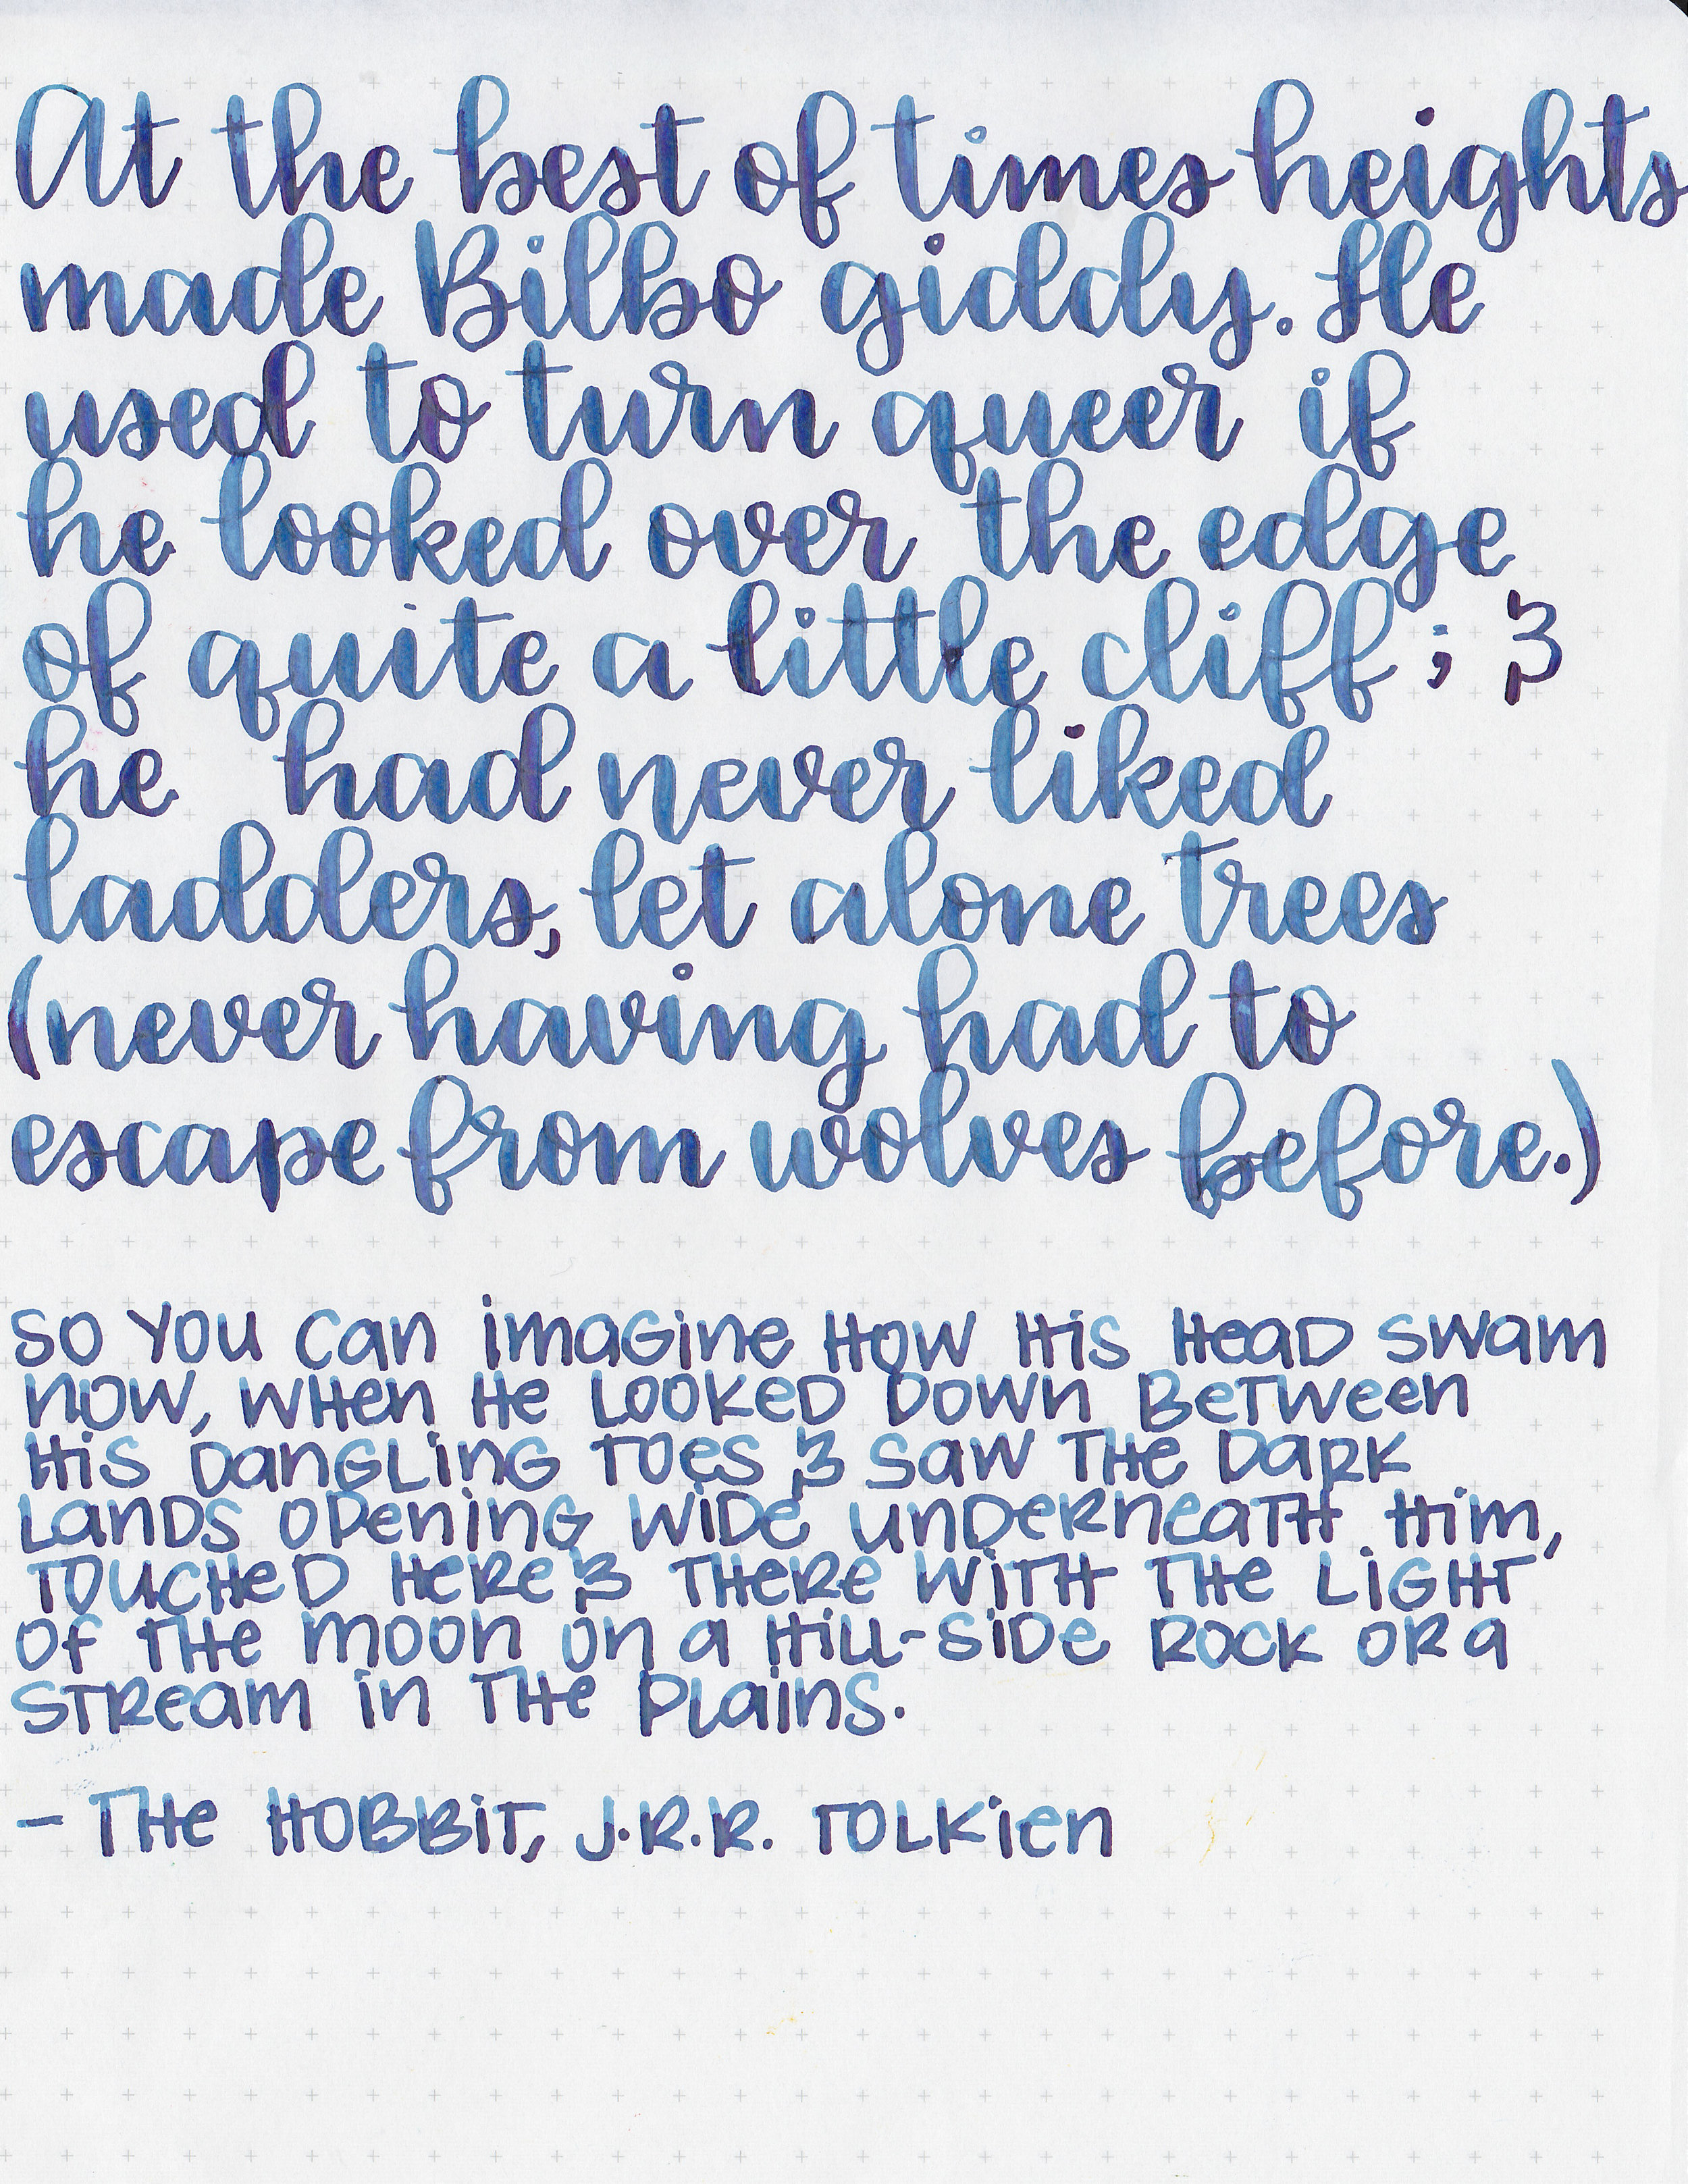 At the best of times heights
made Bilbo giddy. He
used to turn queer if
he looked over the edge
of quite a little cliff; &
he had never liked
ladders, let alone trees
(never having had to
escape from wolves before.)
So you can imagine how his head swam
now, when he looked down between
his dangling toes & saw the dark
lands opening wide underneath him,
touched here & there with the light
of the moon on a hill-side rock or a
stream in the plains.
- The Hobbit, J.R.R. Tolkien